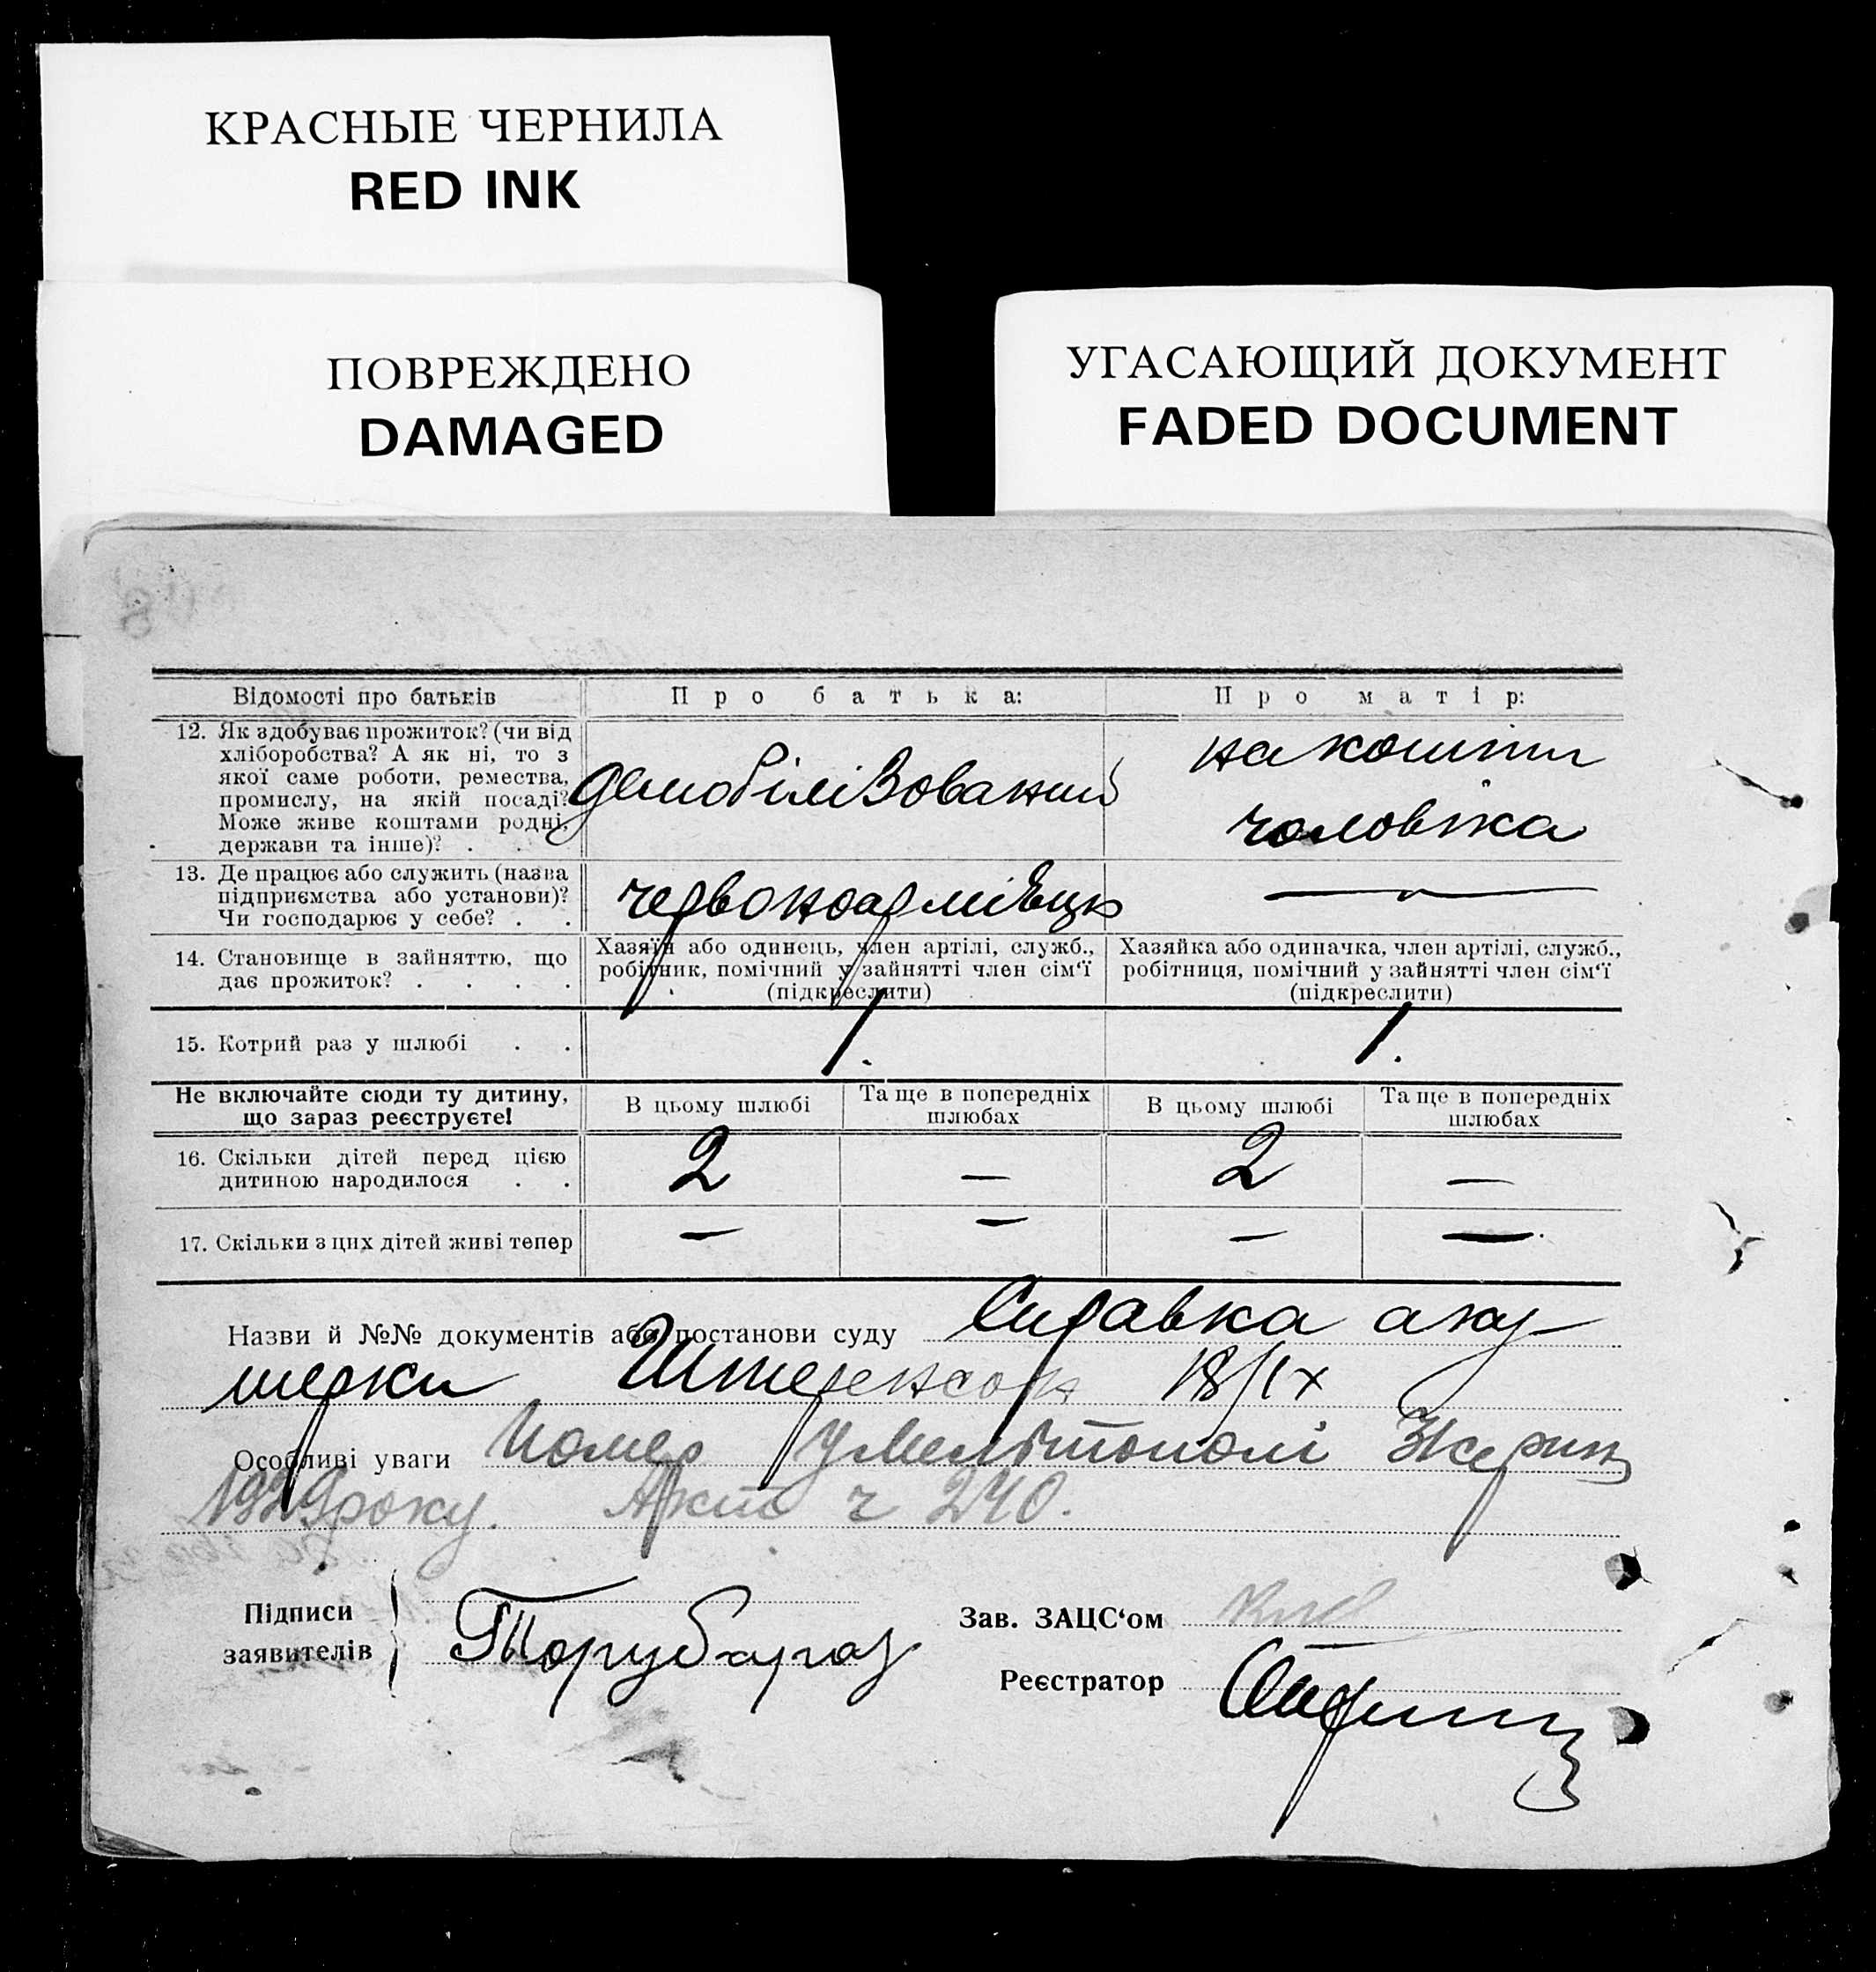 КРАСНЫЕ ЧЕРНИЛА
RED INK
ПОВРЕЖДЕНО
DAMAGED
УГАСАЮЩИЙ ДОКУМЕНТ
FADED DOCUMENT
Відомості про батьків
Про батька:
Про матір:
12. Як здобуває прожиток? (чи від
хліборобства? А як ні, то з
якої саме роботи, ремества,
промислу, на якій посаді?
Може живе коштами родні,
держави та інше)? . .
демобілізований
на кошти
чоловіка
13. Де працює або служить (назва
підприємства або установи)?
Чи господарює у себе? . .
червоноармієць
—
14. Становище в зайняттю, що
дає прожиток? . . . .
Хазяїн або одинець, член артілі, служб.,
робітник, помічний у зайнятті член сім‘ї
(підкреслити)
Хазяйка або одиначка, член артілі, служб.,
робітниця, помічний у зайнятті член сім‘ї
(підкреслити)
15. Котрий раз у шлюбі . .
1.
1.
Не включайте сюди ту дитину,
що зараз реєструєте!
В цьому шлюбі
Та ще в попередніх
шлюбах
В цьому шлюбі
Та ще в попередніх
шлюбах
16. Скільки дітей перед цією
дитиною народилося . .
2
—
2
—
17. Скільки з цих дітей живі тепер
—
—
—
—
Назви й №№ документів або постанови суду Справка аку
шерки Штеренсон 18/IX
Особливі уваги Помер у Мелітополі
1929 року. Акт ч 240.
Підписи
заявителів
Торубара
Зав. ЗАЦС‘ом
Реєстратор